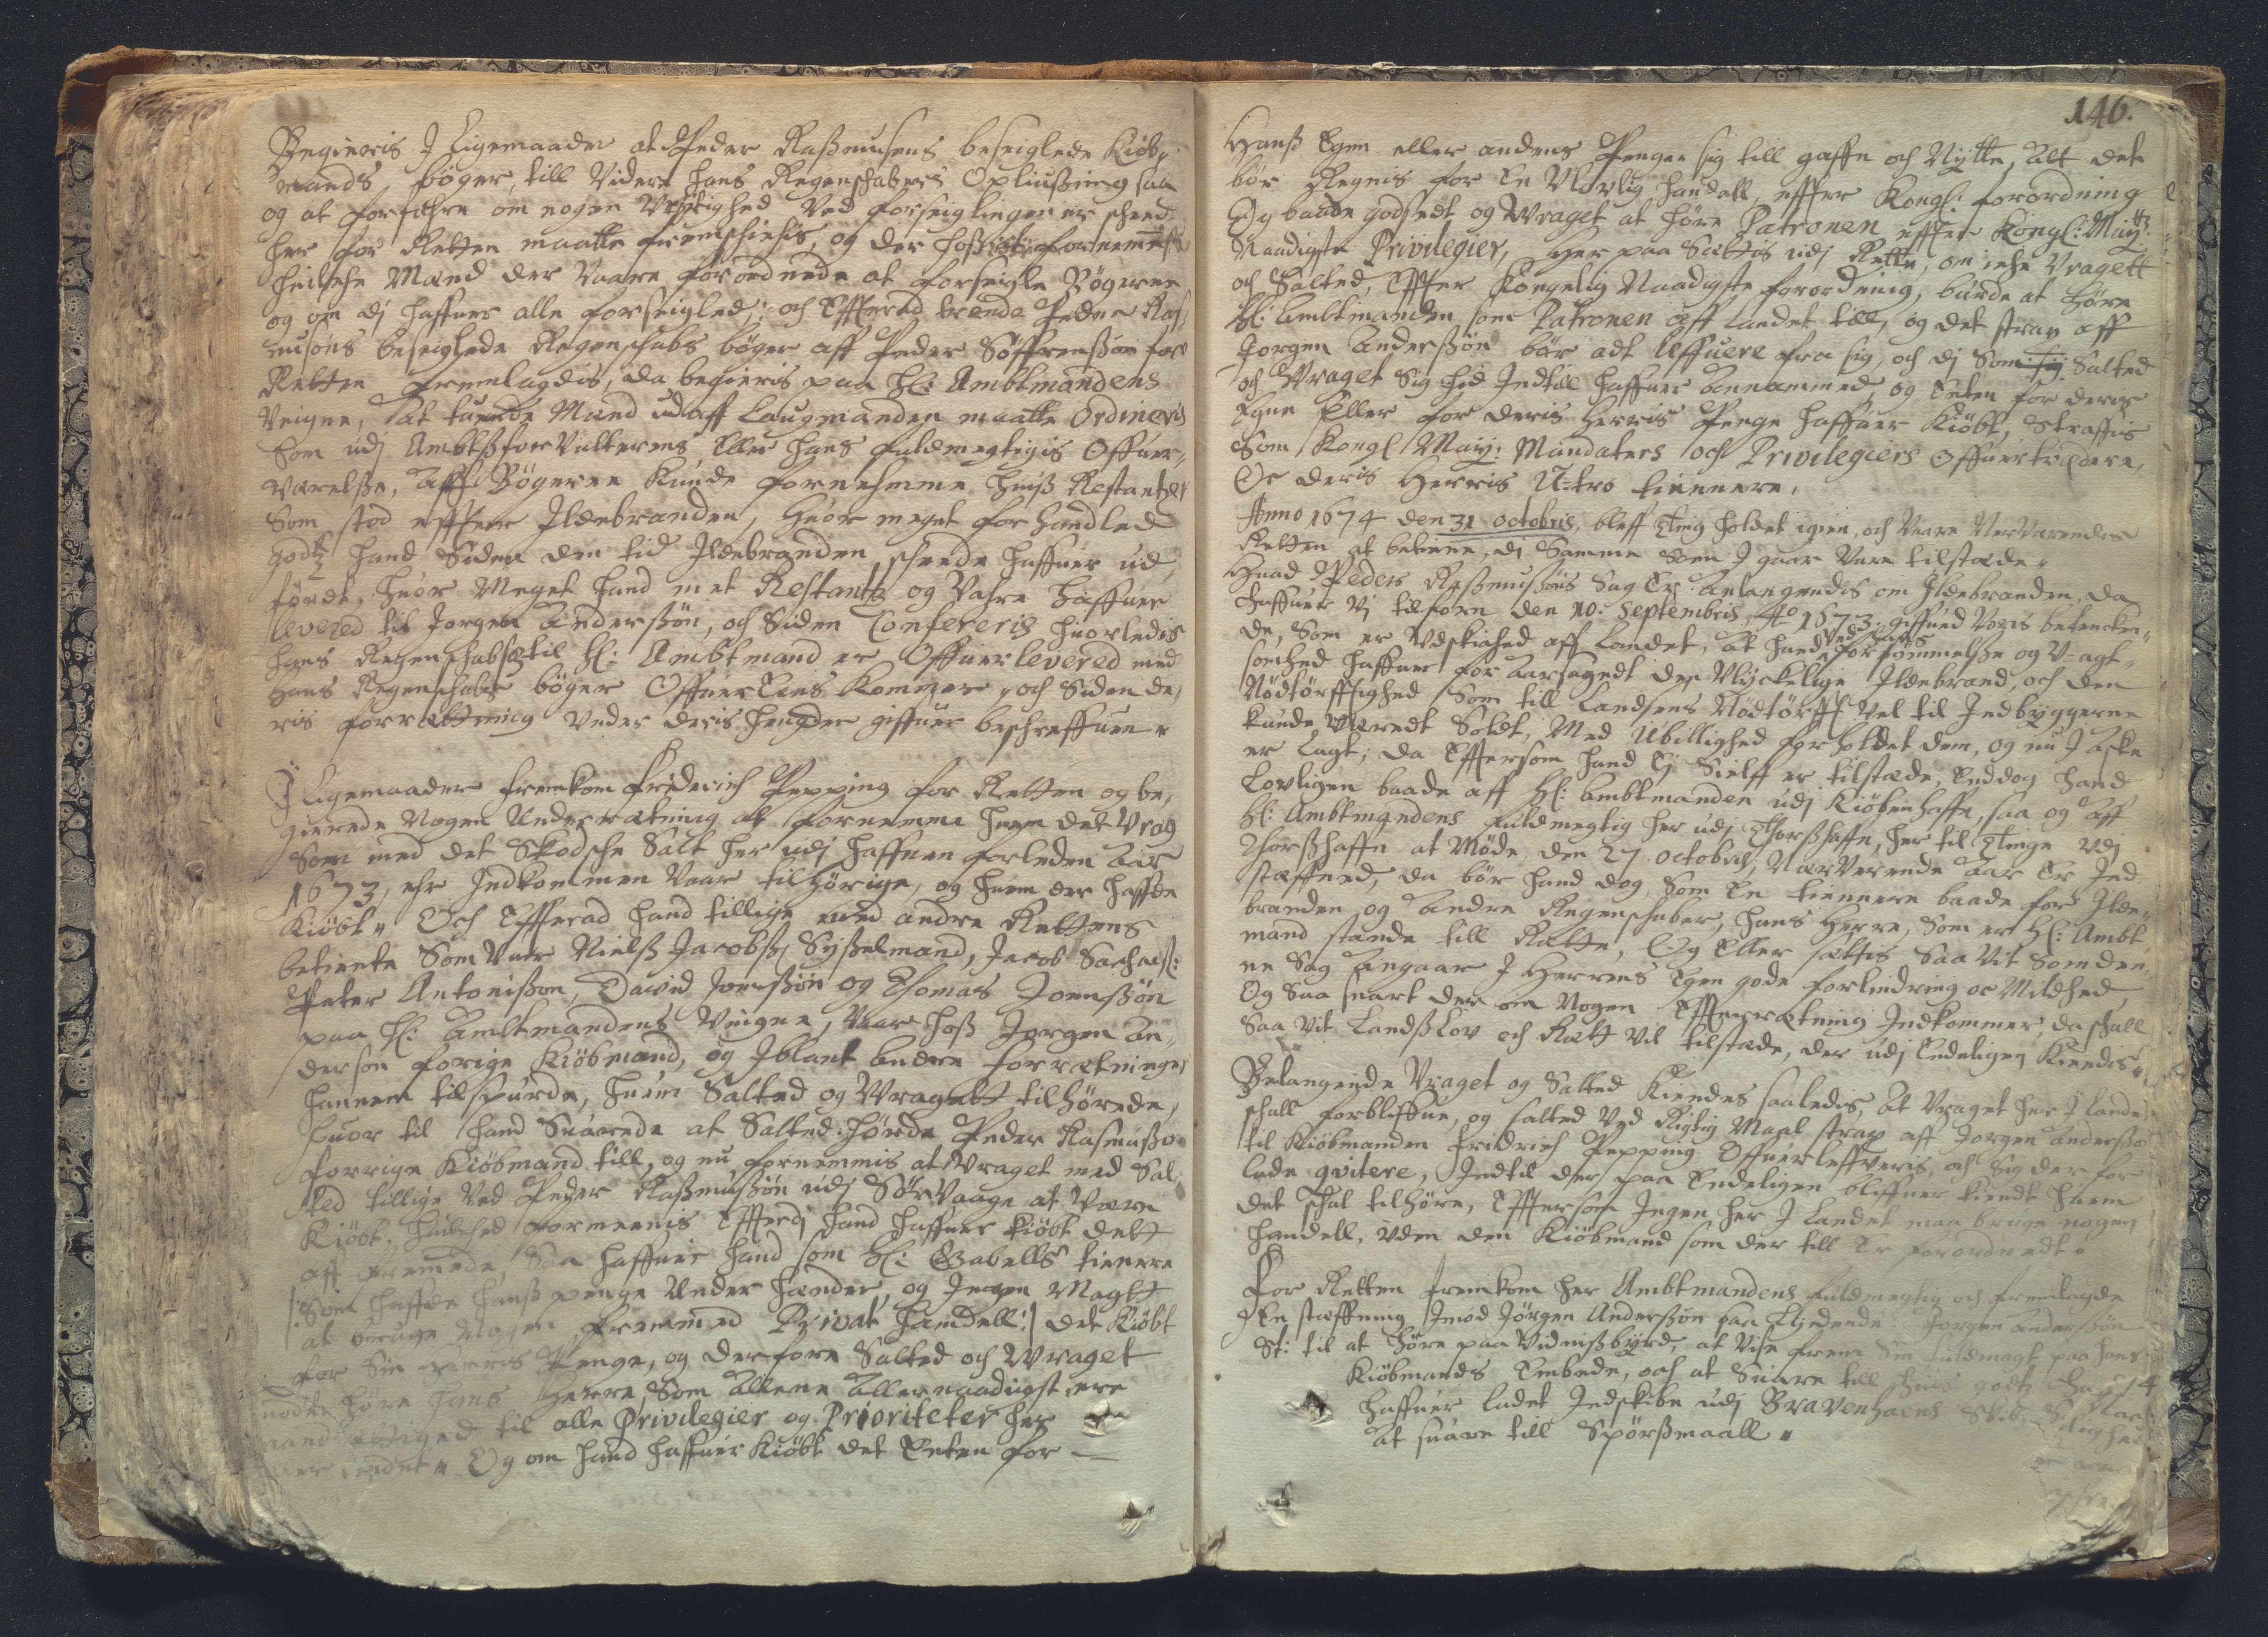 Begieris I Ligemaader at Peder Raßmusens beseiglede Kiøb-
mands bøger, till Videre hans Regenschabers Opliußning saa
og at forfahre om nogen Urigtighed Ved forseiglingen er scheed
her for Retten maatte fremschichis, og der hoß at fornemme
huilche Mænd der Vaare forordnede at forseigle Bøgerne
og om dj haffuer alle forseigled; och Effterad trende Peder Ras-
musøns beseiglede Regenschabs bøger aff Peder Søffrenßøn for
Retten fremlagdis, da begieris paa Hl: Ambtmandens
Veigne, at tuende Mænd udaff Laugmanden maatte Ordineris
Som udj Ambtßforvalterens Eller hans fuldmegtigis Offuer-
værelße, Aff Bøgerne Kunde fornehmme huiß Restantzer
Som stod effter Ildebranden, huor meget forhandled
godtz hand Siden den tid Ildebranden scheede haffuer ud
førdt, huor Meget hand met Restantz og Vahre haffuer
levered til Jørgen Anderßøn, och Siden Confereris huorledis
hans Regenschabs til Hl: Ambtmand er Offuerlevered med
hans Regenschabs bøger Offuer Eens Kommer, och Siden de-
ris forrettning under deris hender giffuer beschreffuen
I Ligemaader fremkom Friderich Pepping for Retten og be-
gierede Nogen Underretning at fornemme huem det Vrag
Som med det Skodsche Salt her udj haffnen forleden Aar
1673, ehr Indkommen Vaar tilhørige, og huem der haffde
Kiøbt. Och Effterad hand tillige med andre Rettens
betiente Som Var Nielß Jacobß: Syßelmand, Jacob Sachaß:
Peter Antonißon, David Joenßøn og Thomas Joenßøn
paa Hl: Ambtmandens Veigne, Vaar hoß Jørgen An-
derson forige Kiøbmand, og Iblant Andre forretninger
hannem tilspurde, huem Salted og Wraget tilhørede,
huor til hand Suarede at Salted hørde Peder Rasmußøn
forrige Kiøbmand till, og nu fornemmis at Wraget med Sal-
ted tillige Ved Peder Raßmußøn udj Sør Vaage at Være
Kiøbt, huilched formeenis Effterdj hand haffuer kiøbt dett
aff fremmede, Saa haffuer hand som Hl: Gabells tienere
|: Som haffde hanß penge Under hænder, og Ingen Magt
at bruge Nogen fremmed Privat handell :| det Kiøbt
for Sin Herris Penge, og derfore Salted och Wraget
høre hans Herre Som Allene Allernaadigst ere
til alle Privilegier og Prioriteter her
Og om hand haffuer Kiøbt det Enten for
146.
Hanß Egen eller andens Penger sig till gaffn och Nytte, Alt dete
bør Regnis for En Ulovlig handell, effter Kongl: forordning
Og baade godsedt og Wraget at høre Patronen effter Kongl: Mayttz
Naadigste Privilegier, her paa Sættis udj Rette, om iche Vragett
och Salted, Effter Kongelig Naadigste forordning, burde at høre
Hl: Ambtmanden som Patronen aff Landet till, og det strax aff
Jørgen Anderßøn bør adt leffuere fra sig, och dj Som Salted
och Wraget Sig hid Indtill haffuer Annammed og Enten for deris
Egne Eller for deris Herris Penge haffuer Kiøbt, Straffis
Som Kongl May: Mandaters och Privilegiers Offuertrædere,
Oc deris Herris U-tro tiennere.
Anno 1674 den 31 octobris, bleff Ting holdet igien, och Vaare Nerværendes
Retten at betiene, dj Samme Som I gaar Vare tilstæde
Huad Peders Raßmußøns Sag Er Anlangendis om Ildebranden, da
haffuer Vj tilforn den 10. Septembris, Ao 1673 giffued Voris betencken-
de, Som er Udskicked aff Landet, At hand Ved hans forsømmelße og U-agt-
somhed haffuer for Aarsagedt den Ulyckelige Ildebrand, och den
Nødtørfftighed Som till Landsens Nødtørfft Vel til Indbyggerne
kunde Væredt Soldt, Med Ubillighed forholdet dem, og nu I Aske
er Lagt, da Efftersom hand Ej Sielff er tilstæde, Enddog hand
Lovligen baade aff Hl: Ambtmanden udj Kiøbenhaffn, saa og Aff
Hl: Ambtmandens fuldmegtig her udj Thorßhaffn, her til Tinge udj
Thorßhaffn at Møde den 27 octobris, Nærværende Aar Er Ind
stæffned, da bør hand dog, Som En tiennere baade for Ilde-
branden og Andre Regenschaber, hans Herre, Som er Hl: Ambt-
mand stande till Rette, Og Eller sættis Saa Vit Som den-
ne Sag Angaar I Herrens Egen gode forlindring oc Mildhed,
Og Saa snart der om Nogen Effterretning Indkommer, da schall
Saa Vit Landßlov och Rætt Vil tilstæde, der udj Endeligen Kiendis
Belangende Vraget og Salted Kiendes saaledis, At Vraget her I Lande
schall forbliffue, og salted Ved Rigtig Maal strax aff Jørgen Anderßøn
til Kiøbmanden Fridrich Pepping Offuerleffveris, och Sig der for
lade qvitere, Indtil der paa Endeligen bliffuer kiendt huem
det schal tilhøre, Effttersom Ingen her I Landet maa bruge nogen
handell, uden den Kiøbmand som der till Er forordnedt
For Retten fremkom her Ambtmandens fuldmegtig och fremlagde
En stæffning Imod Jørgen Anderßøn saa Lydende Jørgen Anderßøn
St: til at høre paa Vidnißbyrd, at Vise frem Sin fuldmagt paa hans
Kiøbmands Embede, och at Suare till huis godtz
haffuer ladet Indskibe udj Bravenhaens Skib
At suare till Spørßmaall